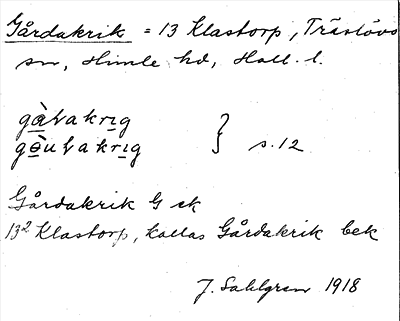 Gårdakrik = 13 Klastorp, Träslövs
sn, Himle hd, Hall. l.
gàƚakrig
gòuƚakrig } s. 12
Gårdakrik G ek
13² Klastorp, kallas Gårdakrik bek
J. Sahlgren 1918